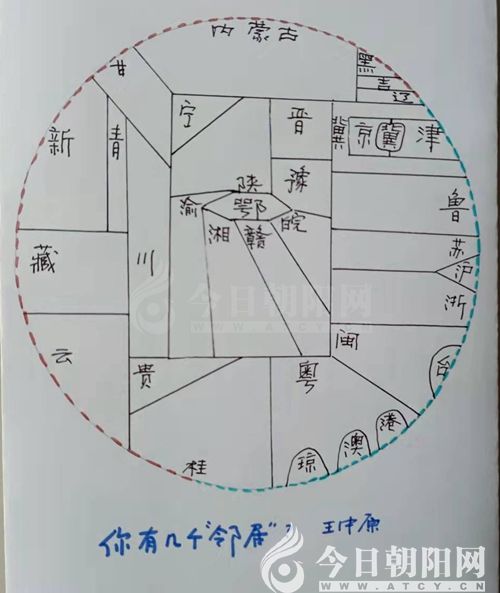 内蒙古
黑
吉
辽
甘
宁
晋
冀
京
冀
津
新
青
陕
豫
渝
鄂
皖
鲁
湘
赣
苏
沪
浙
藏
川
今日朝阳网
WWW.ATCY.GOV.CN
云
贵
粤
闽
台
桂
琼
澳
港
你有几个"邻居"? 王中原
今日朝阳网
WWW.ATCY.GOV.CN